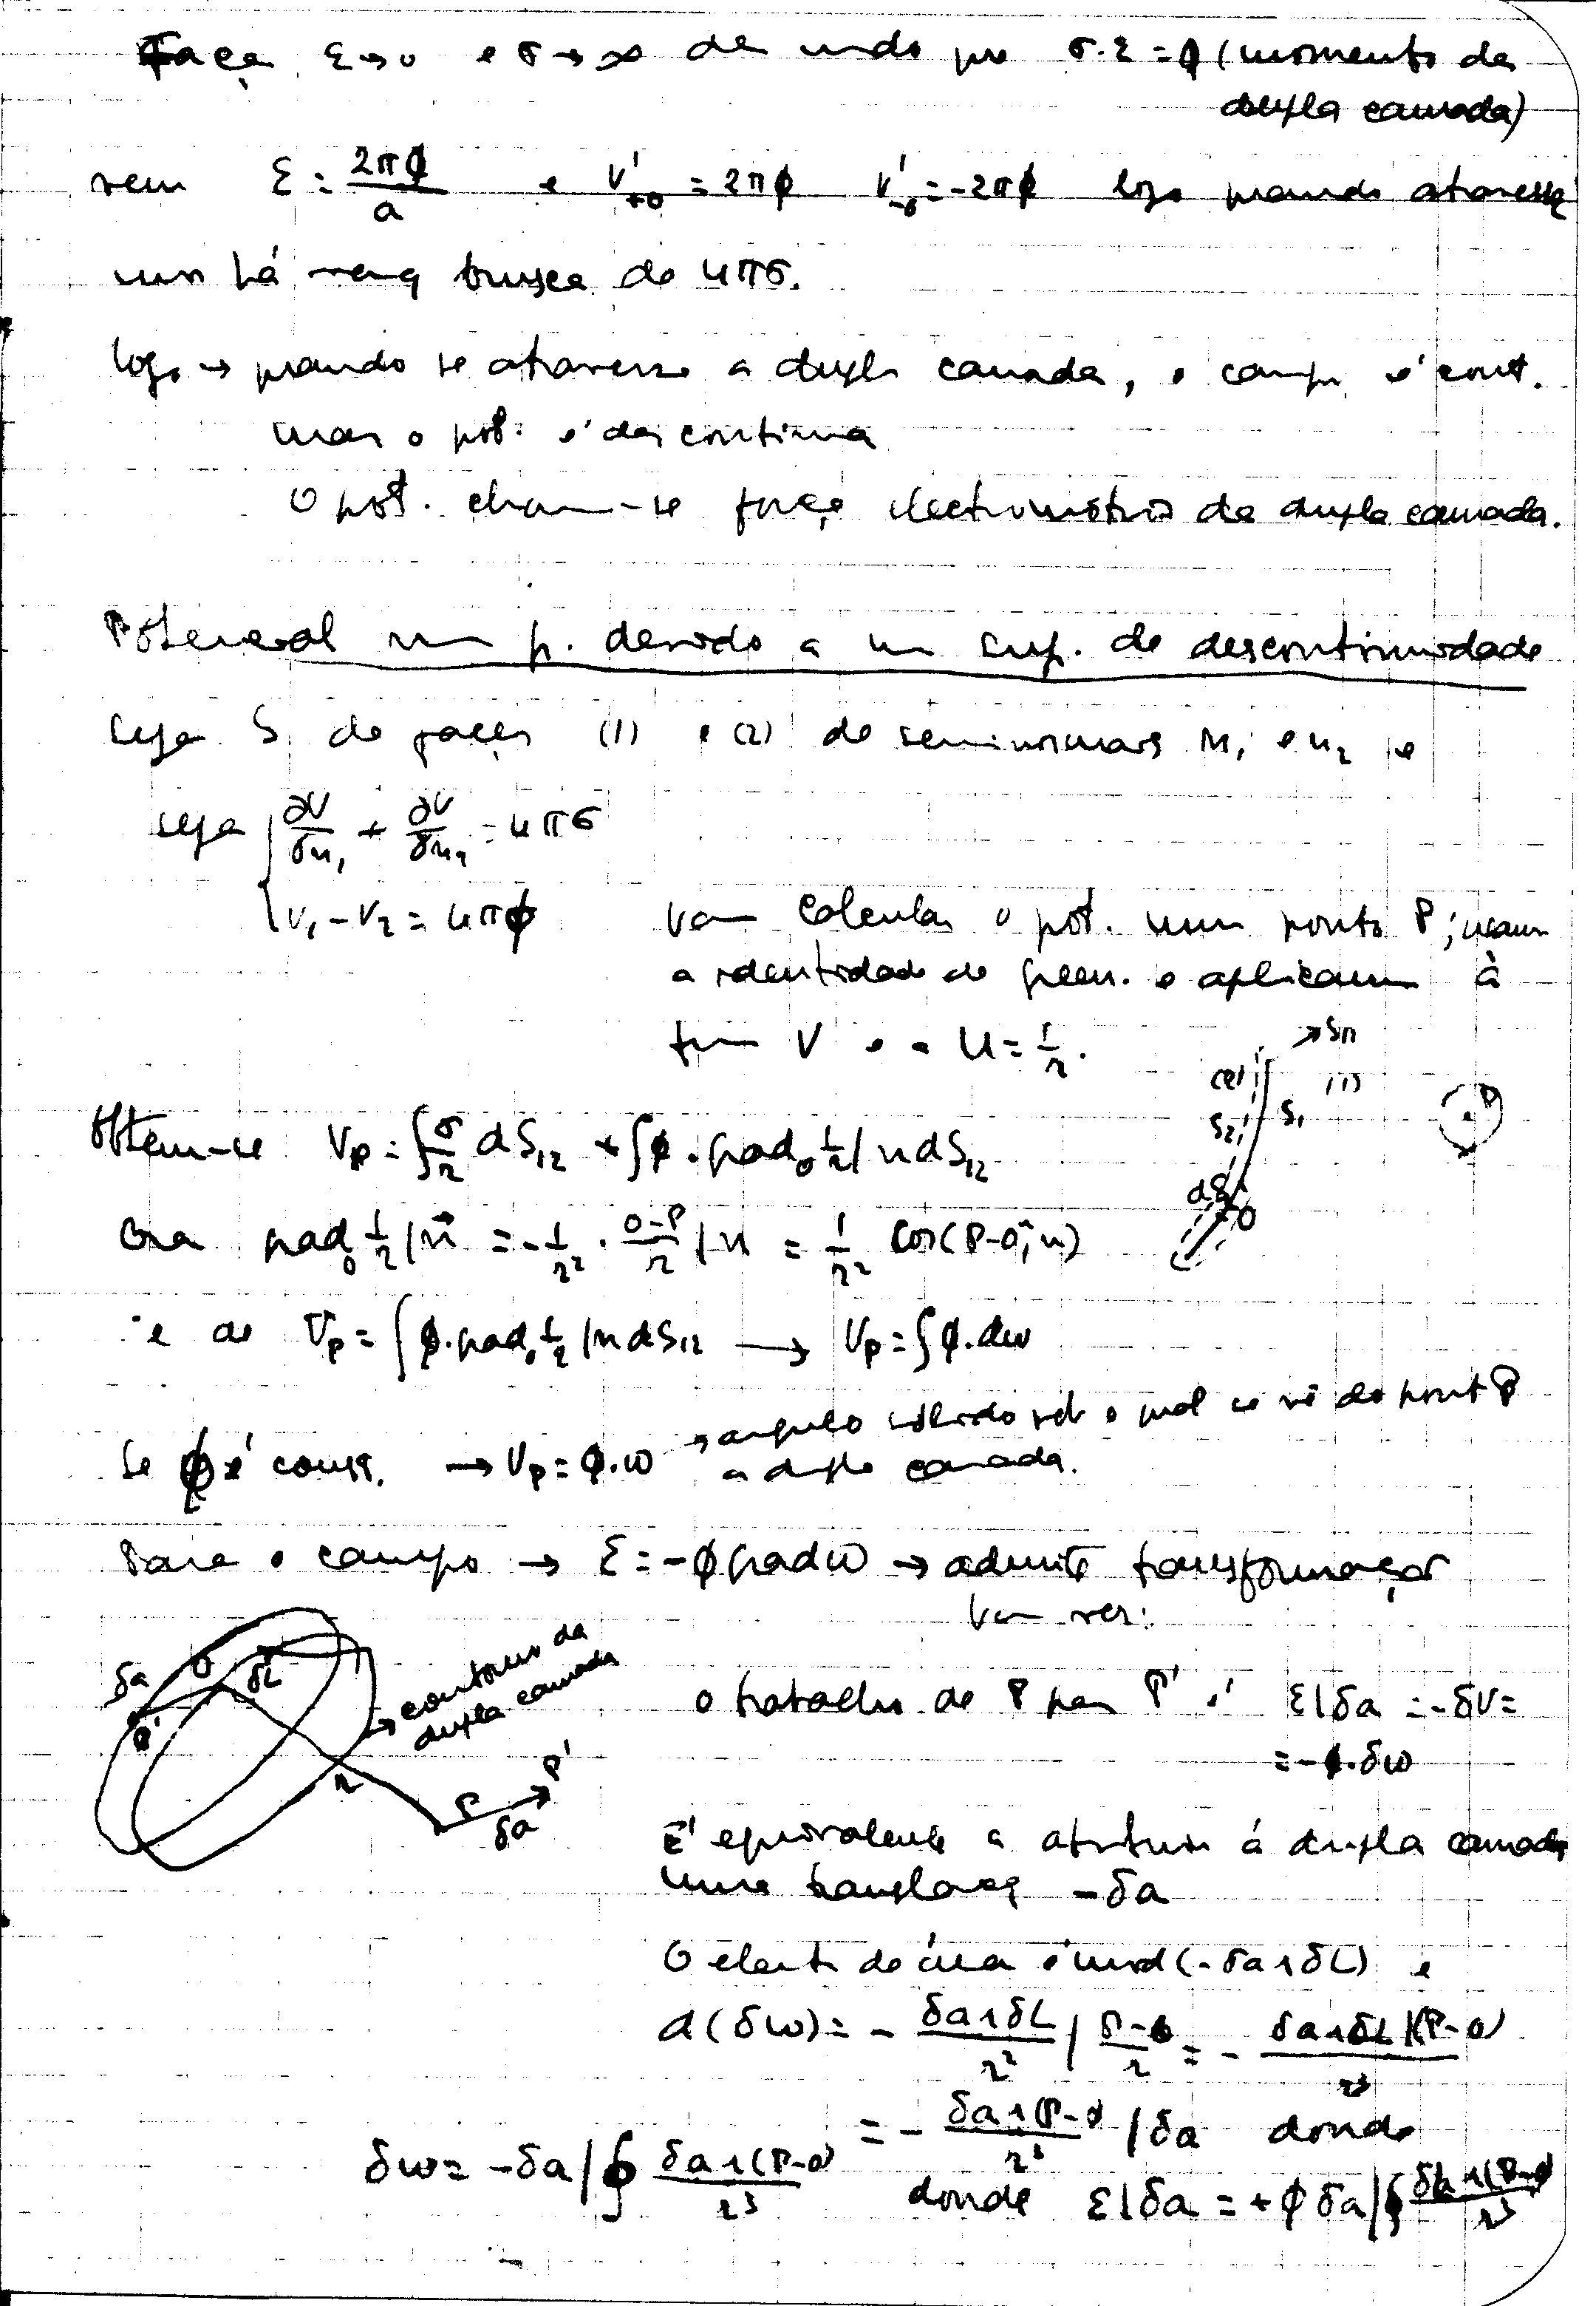 Faça ε→0 e σ→∞ de modo que σ.ε = ϕ (momento da
dupla camada)
vem ε = 2πϕ/a e V'₊₀ = 2πϕ V'₋₀ = -2πϕ logo quando atravessa
há brusca de 4πσ.
logo → quando se atravessa a dupla camada, o campo é cont.
mas o pot. é descontinua
O pot. chama-se força electromotriz da dupla camada.
Potencial num p. devido a um sup. de descontinuidade
Seja S de faces (1) e (2) de seminormais n₁ e n₂ e
seja ∂V/δn₁ + ∂V/δn₂ = 4πσ
V₁ - V₂ = 4πϕ
Vam calcular o pot. num ponto P; usam
a identidade de green. e aplicam à
fun V e a U = 1/r.
→ δn
(2) (1)
S₂ S₁
P
dS
O
Obtem-se Vp = ∫ σ/r dS₁₂ + ∫ϕ . grad₀ 1/r | n dS₁₂
Ora grad₀ 1/r | n⃗ = - 1/r² . O-P/r | n = 1/r² cos(P-O,^n)
e de Vp = ∫ ϕ.grad₀ 1/r | n dS₁₂ → Vp = ∫ϕ.dω
Se ϕ é const. → Vp = ϕ.ω → angulo sólido sob o qual se vê do pont P
a dupla camada.
Para o campo → ε = -ϕ grad ω → admite transformaçor
Vam ver:
δa O δL
O'
→ contorno da
dupla camada
r P δa P'
o trabalho de P para P' é ε|δa = -δV =
= -ϕ.δω
É equivalente a atribuir á dupla camada
uma translaçaç -δa
O elect. de área é mod(-δa∧δL) e
d(δω) = - δa∧δL/r² | P-O/r = - δa∧δL|(P-O)/r³
= - δa∧(P-O)/r³ | δa donde
δω = -δa|∮ δa∧(P-O)/r³ donde ε|δa = +ϕ δa|∮ δL∧(P-O)/r³